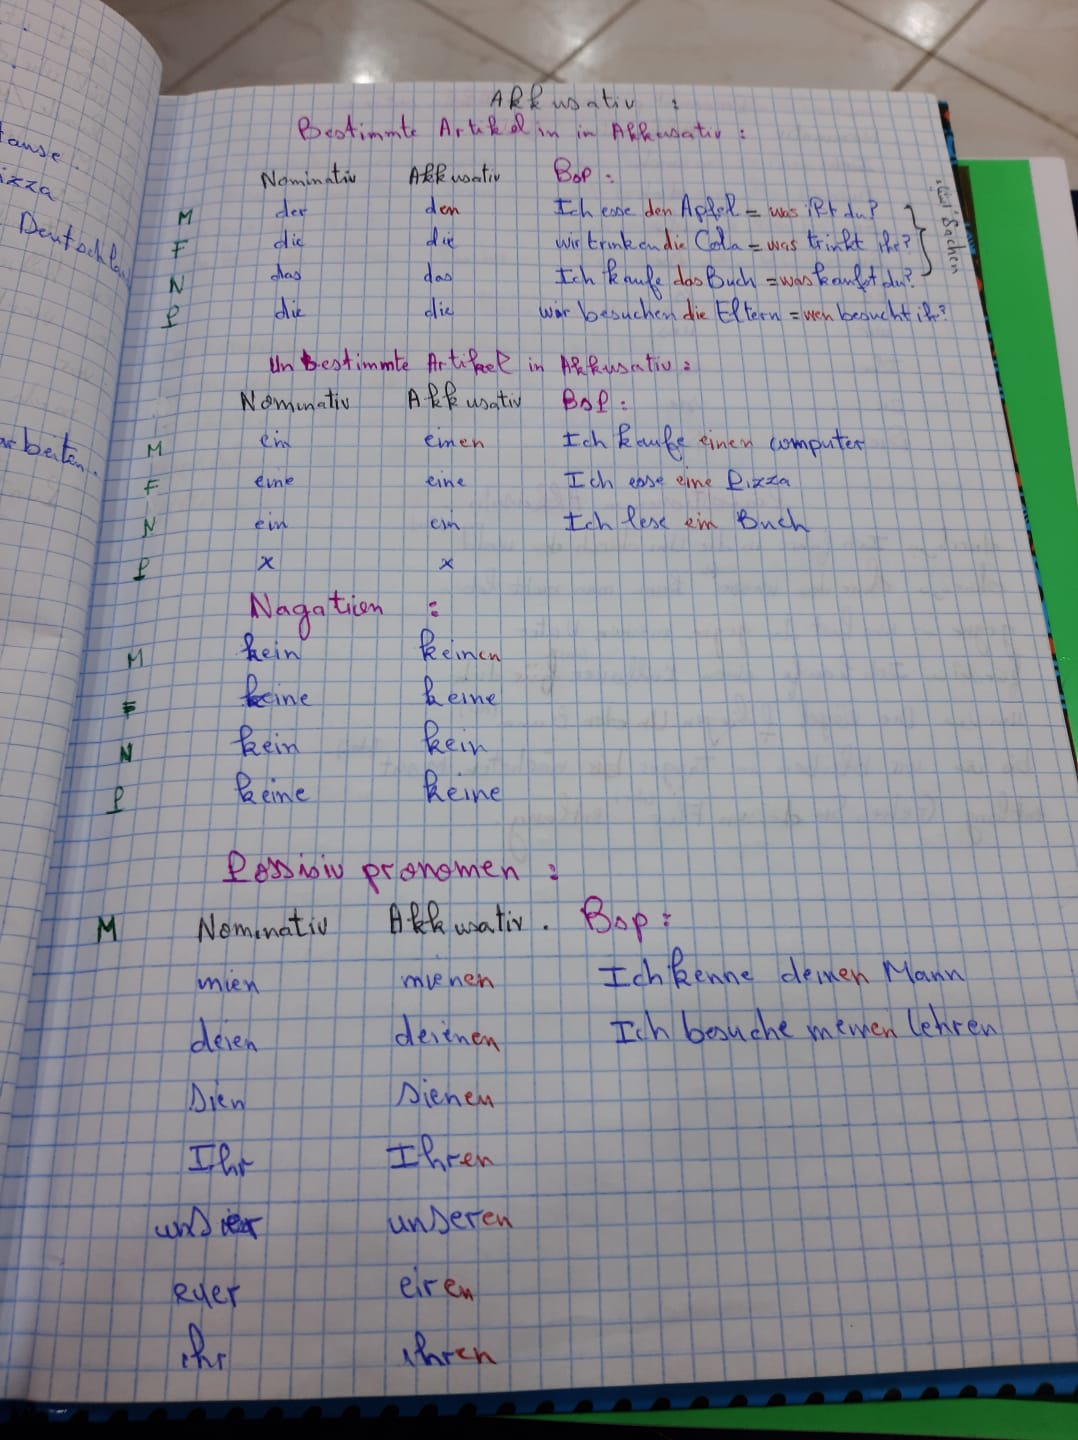 Akkusativ :
Bestimmte Artikel in in Akkusativ :
Nominativ Akkusativ Bsp :
M der den Ich esse den Apfel = was ißt du?
F die die wir trinken die Cola = was trinkt ihr?
N das das Ich kaufe das Buch = was kaufst du?
P die die wir besuchen die Eltern = wen besucht ihr?
Sachen
Un bestimmte Artikel in Akkusativ :
Nominativ Akkusativ Bsp :
M ein einen Ich kaufe einen computer
F eine eine Ich esse eine Pizza
N ein ein Ich lese ein Buch
P x x
Nagatien :
M kein keinen
F keine keine
N kein kein
P keine keine
Possisiv pronomen :
M Nominativ Akkusativ . Bsp :
mien mienen Ich kenne deinen Mann
deien deienen Ich besuche meinen lehren
sien sienen
Ihr Ihren
unsier unseren
euer eiren
ihr ihren
izza
Deutschla
arbeiten.